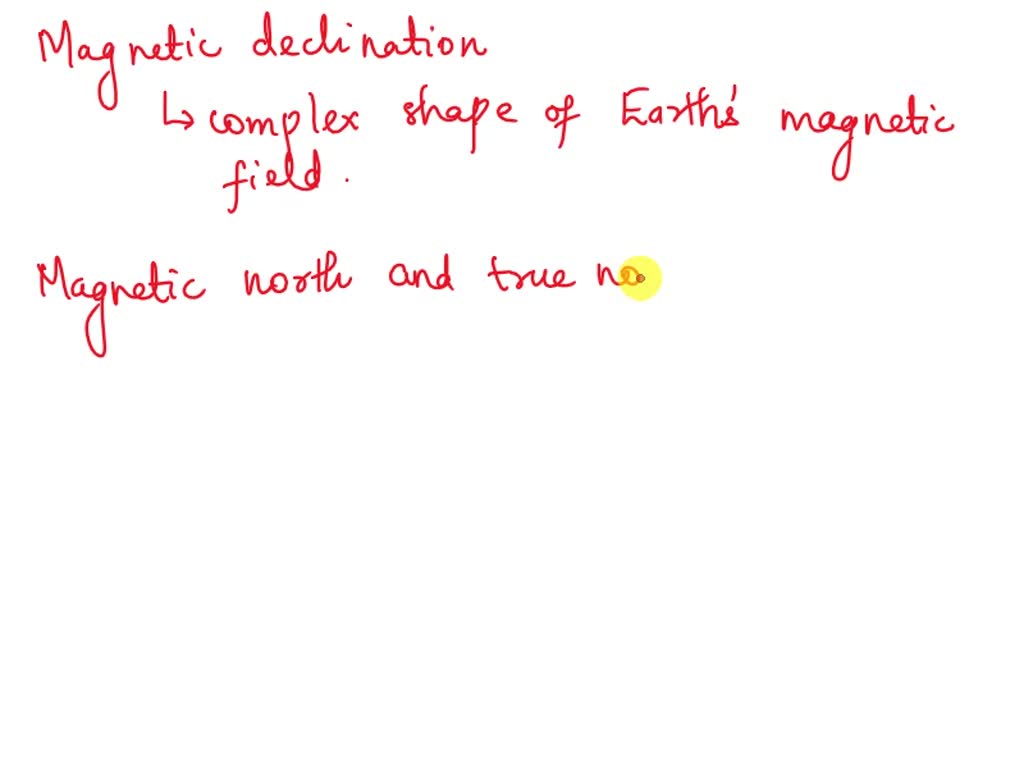 Magnetic declination
↳ complex shape of Earth's magnetic
field.
Magnetic north and true no